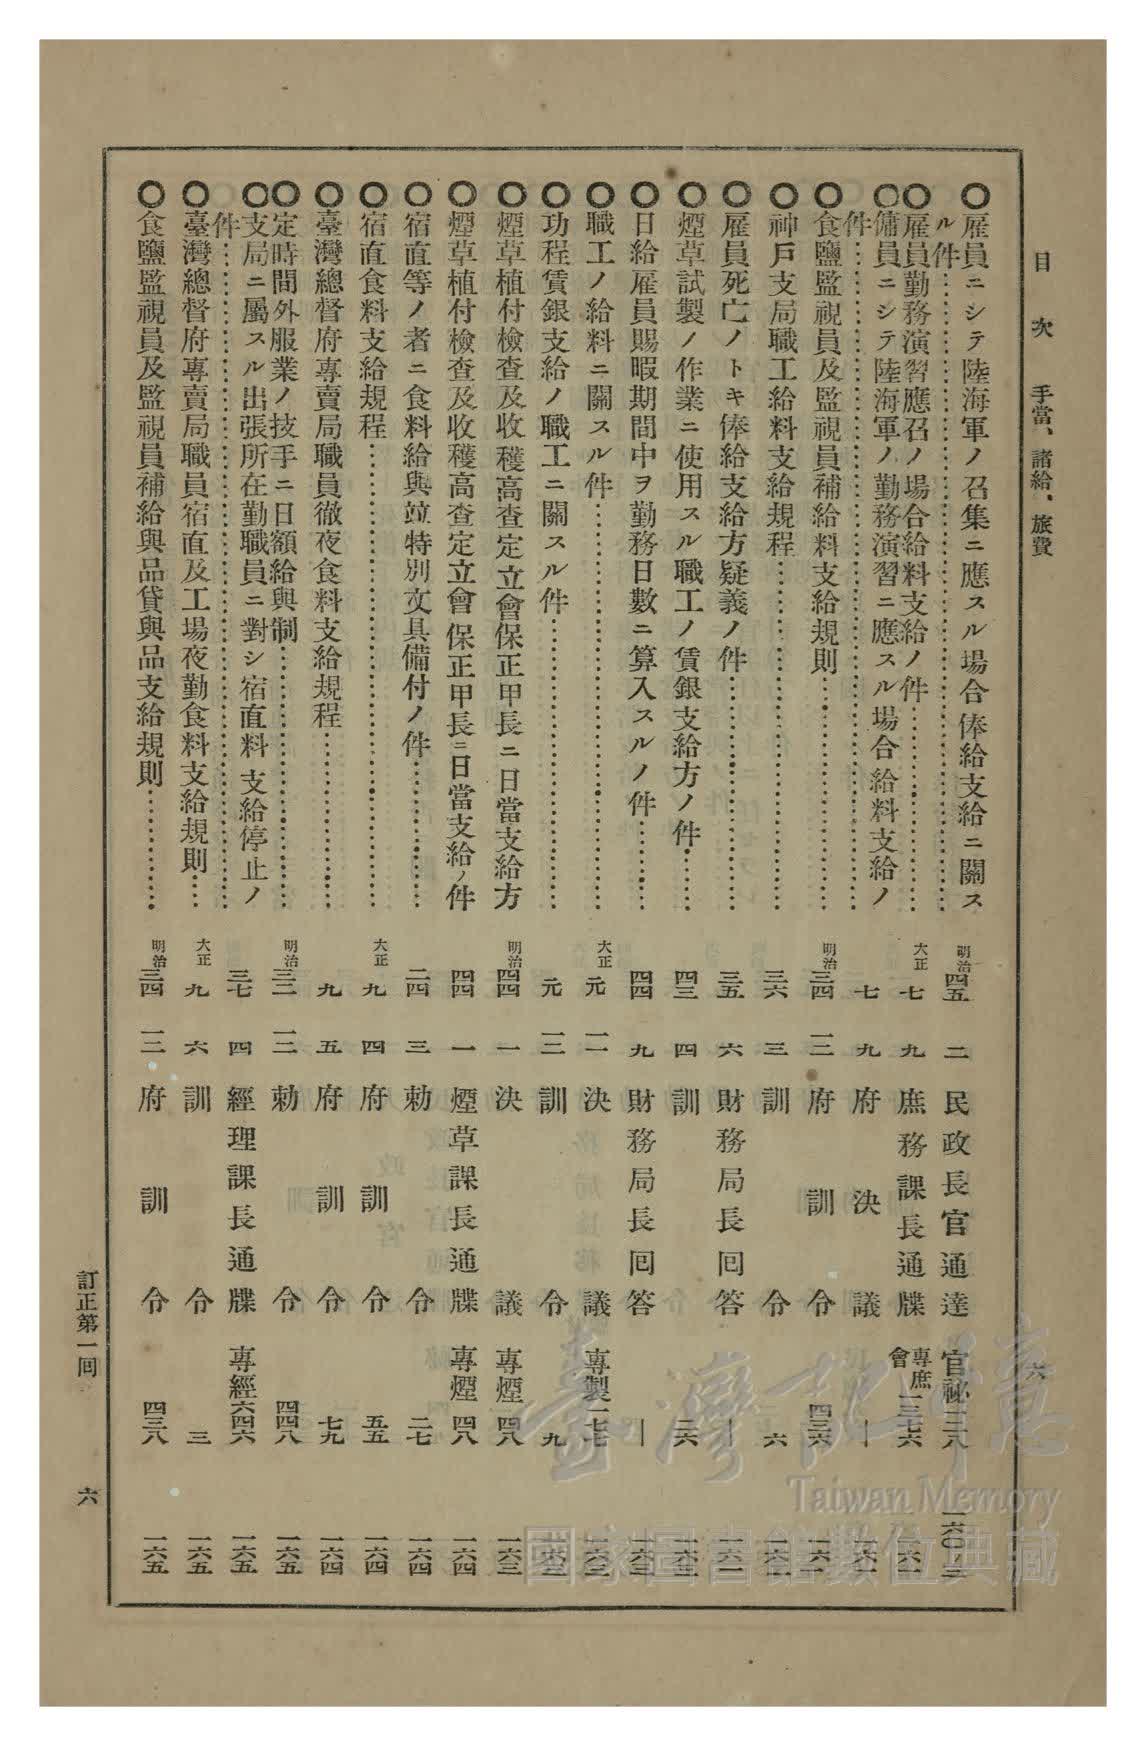 目次　手當、諸給、旅費　六
○雇員ニシテ陸海軍ノ召集ニ應スル場合俸給支給ニ關ス
ル件…… 明治四五 二 民政長官通達 官祕
○雇員勤務演習應召ノ場合給料支給ノ件…… 大正七 九 庶務課長通牒 專庶會一三七六
○傭員ニシテ陸海軍ノ勤務演習ニ應スル場合給料支給ノ
件…… 七 九 府決議 ―
○食鹽監視員及監視員補給料支給規則…… 明治三四 一二 府訓令 四三六
○神戶支局職工給料支給規程…… 三六 三 訓令 六
○雇員死亡ノトキ俸給支給方疑義ノ件…… 三五 六 財務局長囘答 ―
○煙草試製ノ作業ニ使用スル職工ノ賃銀支給方ノ件…… 四三 四 訓令 二六
○日給雇員賜暇期間中ヲ勤務日數ニ算入スルノ件…… 四四 九 財務局長囘答 ―
○職工ノ給料ニ關スル件…… 大正元 一一 決議 專製一七七
○功程賃銀支給ノ職工ニ關スル件…… 元 一二 訓令 九
○煙草植付檢查及收穫高查定立會保正甲長ニ日當支給方 明治四四 一 決議 專煙四八 一六三
○煙草植付檢查及收穫高查定立會保正甲長ニ日當支給ノ件 四四 一 煙草課長通牒 專煙四八 一六四
○宿直等ノ者ニ食料給與竝特別文具備付ノ件…… 二四 三 勅令 二七 一六四
○宿直食料支給規程…… 大正九 四 府訓令 五五 一六四
○臺灣總督府專賣局職員徹夜食料支給規程…… 九 五 府訓令 七九 一六四
○定時間外服業ノ技手ニ日額給與制…… 明治三二 一二 勅令 四四八 一六五
○支局ニ屬スル出張所在勤職員ニ對シ宿直料支給停止ノ
件…… 三七 四 經理課長通牒 專經六四六 一六五
○臺灣總督府專賣局職員宿直及工場夜勤食料支給規則…… 大正九 六 訓令 三 一六五
○食鹽監視員及監視員補給與品貸與品支給規則…… 明治三四 一二 府訓令 四三八 一六五
訂正第一囘　六
臺灣記憶
Taiwan Memory
國家圖書館數位典藏